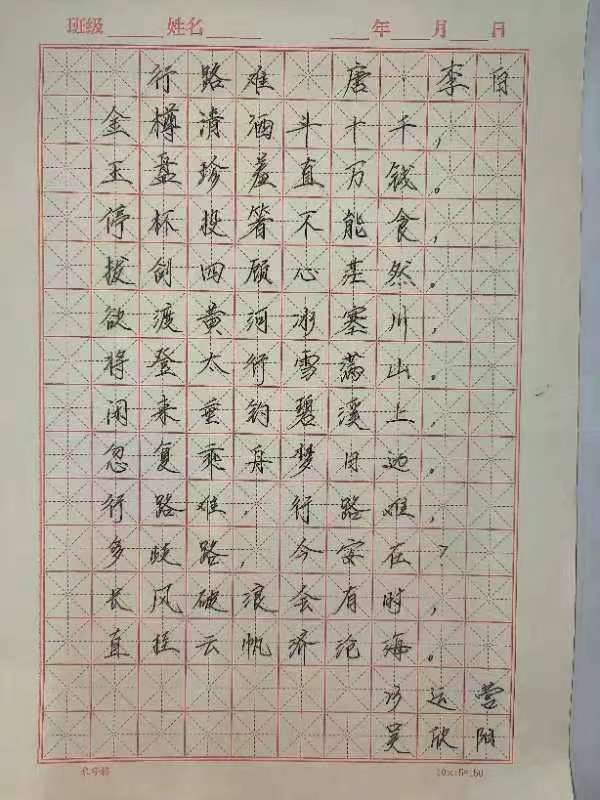 班级 姓名 年 月 日
行路难 唐·李白
金樽清酒斗十千，
玉盘珍羞直万钱。
停杯投箸不能食，
拔剑四顾心茫然。
欲渡黄河冰塞川，
将登太行雪满山。
闲来垂钓碧溪上，
忽复乘舟梦日边。
行路难，行路难，
多歧路，今安在？
长风破浪会有时，
直挂云帆济沧海。
运营
吴欣阳